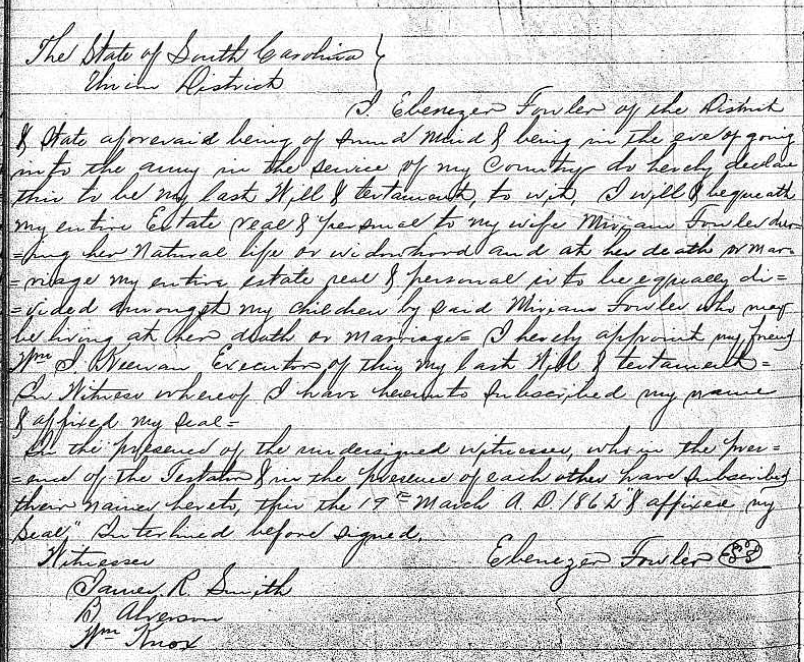 The State of South Carolina }
Union District
I, Ebenezer Fowler of the District
& State aforesaid being of Sound Mind & being in the eve of going
in to the army in the service of my Country do hereby declare
this to be my last Will & testament, to wit, I will & bequeath
my entire Estate real & personal to my wife Miriam Fowler dur=
=ing her Natural life or widowhood and at her death or mar=
=riage my entire estate real & personal is to be equally di=
=vided amongst my children by said Miriam Fowler who may
be living at her death or marriage= I hereby appoint my friend
Wm J. Keenan Executor of this my last Will & testament=
In Witness whereof I have hereunto Subscribed my name
& affixed my seal=
In the presence of the undersigned witnesses, who in the pres=
=ence of the Testator & in the presence of each other have Subscribed
their names hereto, this the 19th March A. D. 1862 "& affixed my
Seal," Interlined before signed.
Witnesses Ebenezer Fowler
James R. Smith
B Alverson
Wm Knox